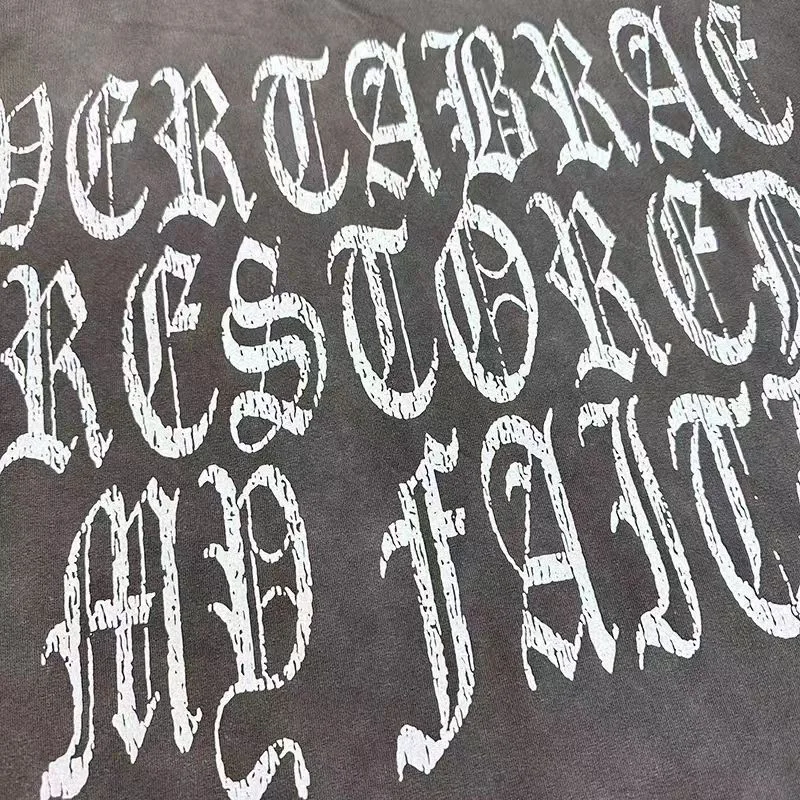 VERTABRAE
RESTORED
MY FAITH